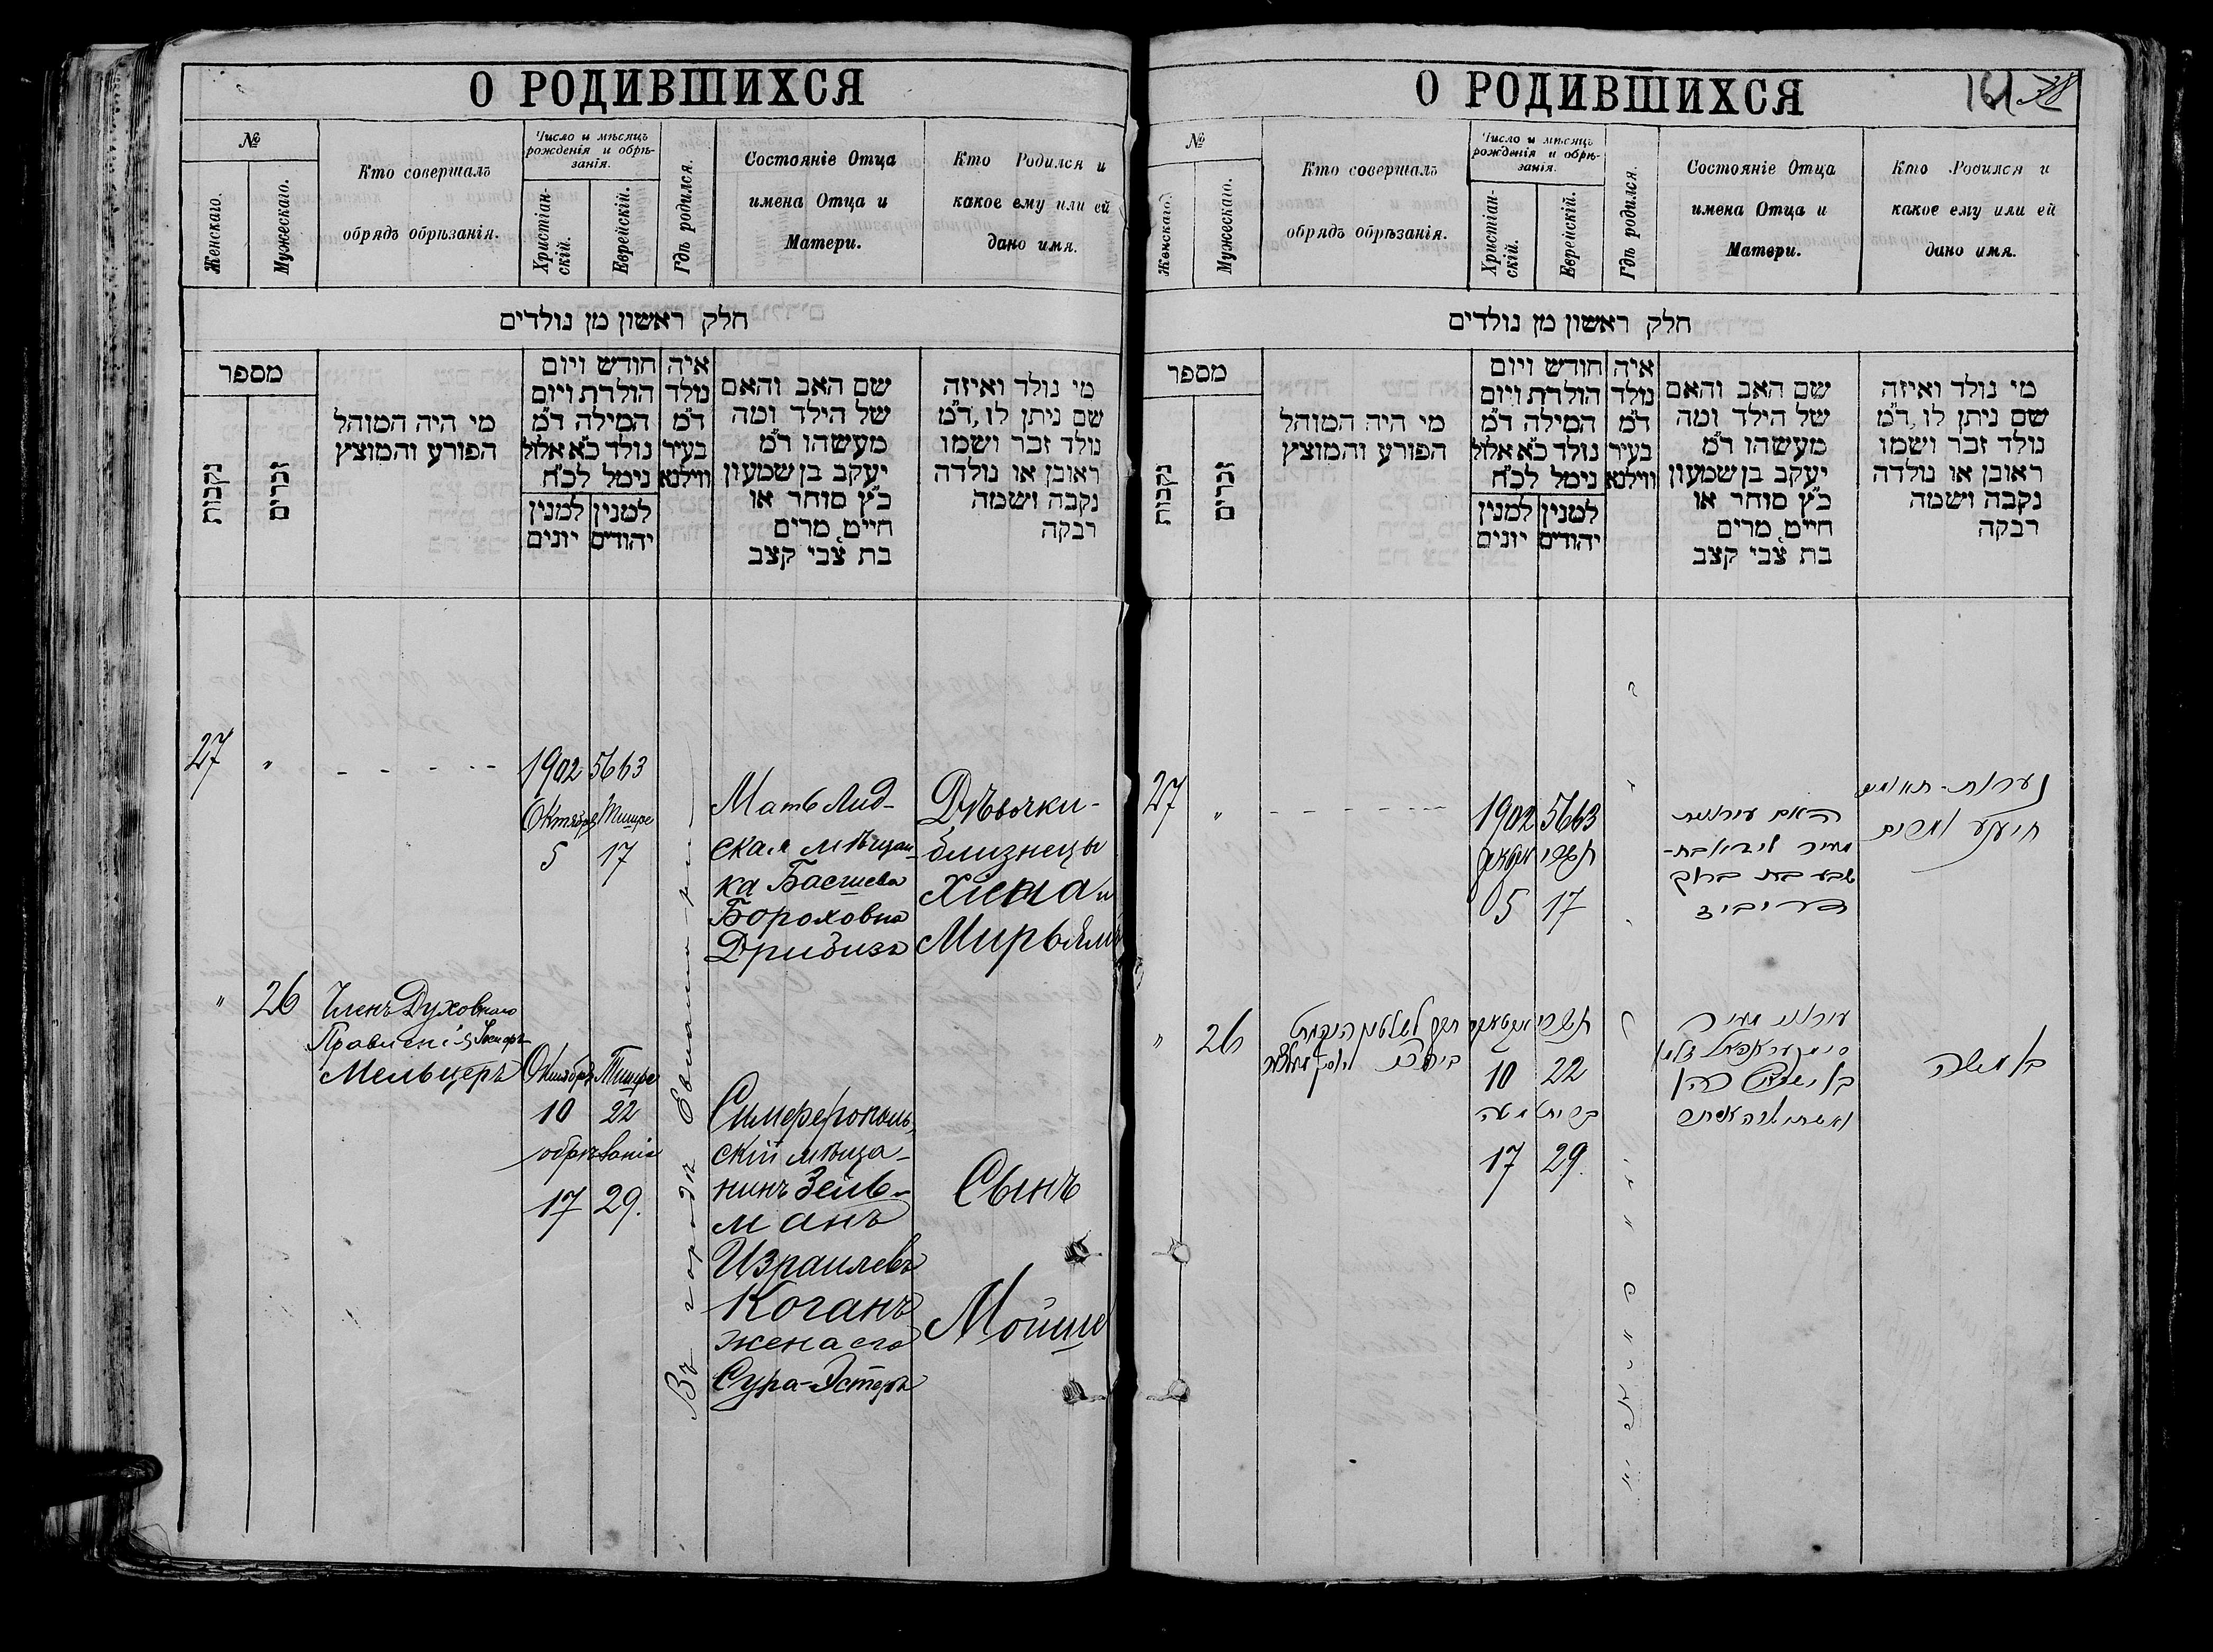 О РОДИВШИХСЯ
№
Женскаго.
Мужескаго.
Кто совершалъ
обрядъ обрѣзанія.
Число и мѣсяцъ
рожденія и обрѣ-
занія.
Христіан-
скій.
Еврейскій.
Гдѣ родился.
Состояніе Отца
имена Отца и
Матери.
Кто Родился и
какое ему или ей
дано имя.
חלק ראשון מן נולדים
מספר
נקבות
זכרים
מי היה המוהל
הפורע והמוצץ
חודש ויום
הולדת ויום
המילה ד"מ
נולד כ"א אלול
נימל לכ"ח
למנין
יהודים
למנין
יונים
איה
נולד
ד"מ
בעיר
ווילנא
שם האב והאם
של הילד ומה
מעשהו ד"מ
יעקב בן שמעון
כ"ץ סוחר או
חייט, מרים
בת צבי קצב
מי נולד ואיזה
שם ניתן לו, ד"מ
נולד זכר ושמו
ראובן או נולדה
נקבה ושמה
רבקה
27 " - - - - - -
1902 5663
Октября Тишре
5 17
Мать Лид-
ская мѣщан-
ка Басшева
Бороховна
Дрибизъ
Дѣвочки-
близнецы
Хіена и
Мирьямъ
" 26
Членъ Духовнаго
Правленія
Мельцеръ
Октября Тишре
10 22
обрѣзанія
17 29.
Въ городѣ Евпаторіи
Симферополь-
скій мѣща-
нинъ Зель-
манъ
Израилевъ
Коганъ
жена его
Сура-Эстеръ
Сынъ
Мойше
О РОДИВШИХСЯ
161
№
Женскаго.
Мужескаго.
Кто совершалъ
обрядъ обрѣзанія.
Число и мѣсяцъ
рожденія и обрѣ-
занія.
Христіан-
скій.
Еврейскій.
Гдѣ родился.
Состояніе Отца
имена Отца и
Матери.
Кто Родился и
какое ему или ей
дано имя.
חלק ראשון מן נולדים
מספר
נקבות
זכרים
מי היה המוהל
הפורע והמוצץ
חודש ויום
הולדת ויום
המילה ד"מ
נולד כ"א אלול
נימל לכ"ח
למנין
יהודים
למנין
יונים
איה
נולד
ד"מ
בעיר
ווילנא
שם האב והאם
של הילד ומה
מעשהו ד"מ
יעקב בן שמעון
כ"ץ סוחר או
חייט, מרים
בת צבי קצב
מי נולד ואיזה
שם ניתן לו, ד"מ
נולד זכר ושמו
ראובן או נולדה
נקבה ושמה
רבקה
27 " - - - - - -
1902 5663
תשרי
5 17
האם עירונית
מעיר לידא בת-
שבע בת ברוך
דריביז
" 26
תשרי
10 22
17 29.
עירוני מעיר
בן משה